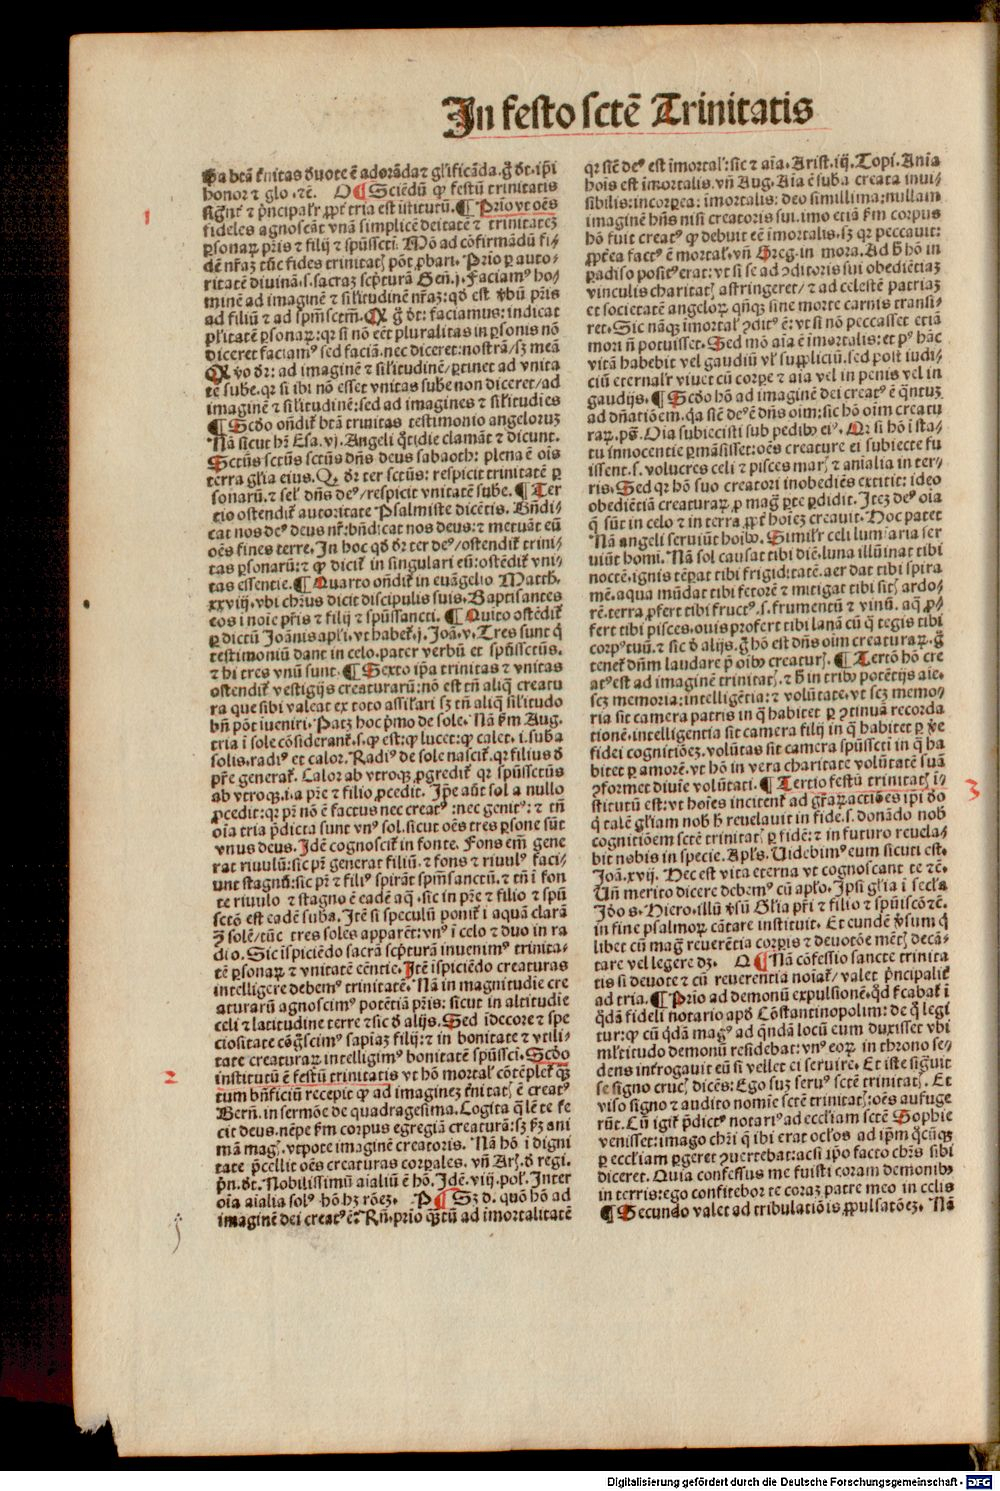 In festo sctē Trinitatis
ea btā t̄nitas d̄uote ē adorāda ⁊ gl̄ificāda. g̊ d̄t. ip̄i
honor ⁊ glo. ⁊c̄. O ¶ Sciēdū ꝙ festū trinitatis
sig̅nt ⁊ p̄ncipal̄r ꝓpt̄ tria est īstitutū. ¶ Prīo vt oēs
fideles agnoscāt vnā simplicē deitatē ⁊ trinitatez
ꝑsonaꝝ pr̄is ⁊ filij ⁊ spūsscti. Mō ad cōfirmādū fi-
dē nr̄az tūc fides trinitatꝭ pōt ꝓbari. Prīo ꝑ auto-
ritatē diuinā. s. sacraz scp̄turā Gen̄. j. Faciamꝰ ho-
minē ad imaginē ⁊ sil̄itudinē nr̄az: qd̄ est v̄bū pr̄is
ad filiū ⁊ ad spm̄sctm̄. Qꝛ g̊ d̄t: faciamus: indicat
pl̄itatē ꝑsonaꝝ: qꝛ si nō eēt pluralitas in ꝑsonis nō
diceret faciamꝰ sed faciā. nec diceret: nostrā/ sꝫ meā
Qꝛ vo d̄r: ad imaginē ⁊ sil̄itudinē/ ꝑtinet ad vnita
tē sube. qꝛ si ibi nō esset vnitas sube non diceret/ ad
imaginē ⁊ sil̄itudinē: sed ad imagines ⁊ sil̄itudies
¶ Scd̄o on̄dit̄ btā trinitas testimonio angeloruꝫ
Nā sicut hꝫ Esa. vj. Angeli q̊tidie clamāt ⁊ dicunt.
Sctūs sctūs sctūs dn̄s deus sabaoth: plena ē ois
terra gl̄ia eius. Q. d̄r ter sctūs: respicit trinitatē ꝑ
sonarū. ⁊ sel̄ dn̄s deꝰ/ respicit vnitatē sube. ¶ Ter
tio ostendit̄ autoritate Psalmiste dicētis. Bn̄di-
cat nos deꝰ deus nr̄: bn̄dicat nos deus: ⁊ metuāt eū
oēs fines terre. In hoc qd̄ d̄r ter deꝰ/ ostendit̄ trini-
tas ꝑsonarū: ⁊ ꝙ dicit̄ in singulari eū: ostēdit̄ vni-
tas essentie. ¶ Quarto on̄dit̄ in euāgelio Matth.
xxviij. vbi chr̄us dicit discipulis suis. Baptisantes
eos ī noīe pr̄is ⁊ filij ⁊ spūssancti. ¶ Quīto ostēdit̄
ꝑ dictū Joānis apl̄i. vt habet̄. j. Joā. v. Tres sunt q̄
testimoniū dant in celo. pater verbū et spūssctūs.
⁊ hi tres vnū sunt. ¶ Sexto ip̄a trinitas ⁊ vnitas
ostendit̄ vestigijs creaturarū: nō est tn̄ aliq̄ creatu
ra que sibi valeat ex toto assil̄ari sꝫ tn̄ aliq̄ sil̄itudo
bn̄ pōt īueniri. Patꝫ hoc p̄mo de sole. Nā s̄m Aug.
tria ī sole cōsiderant̄. s. ꝙ est: ꝙ lucet: ꝙ calet. i. suba
solis. radiꝰ et calor. Radiꝰ de sole nascit̄. qꝛ filius d̄
pr̄e generat̄. Calor ab vtroqꝫ ꝓgredit̄ qꝛ spūssctūs
ab vtroqꝫ. i. a pr̄e ⁊ filio ꝓcedit. Ip̄e aūt sol a nullo
ꝓcedit: qꝛ pr̄ nō ē factus nec creatꝰ: nec genitꝰ: ⁊ tn̄
oīa tria p̄dicta sunt vnꝰ sol. sicut oēs tres ꝑsone sūt
vnus deus. Idē cognoscit̄ in fonte. Fons em̄ gene
rat riuulū: sic pr̄ generat filiū. ⁊ fons ⁊ riuulꝰ faci-
unt stagnū: sic pr̄ ⁊ filiꝰ spirāt spm̄sanctū. ⁊ tn̄ ī fon
te riuulo ⁊ stagno ē eadē aq̄. sic in pr̄e ⁊ filio ⁊ spū
sctō est eadē suba. Itē si speculū ponit̄ ī aquā clarā
ↄ̄ solē/ tūc tres soles apparēt: vnꝰ ī celo ⁊ duo in ra
dio. Sic īspiciēdo sacrā scp̄turā inuenimꝰ trinita-
tē ꝑsonaꝝ ⁊ vnitatē eēntie. Itē īspiciēdo creaturas
intelligere debemꝰ trinitatē. Nā in magnitudie cre
aturarū agnoscimꝰ potētiā pr̄is: sicut in altitudie
celi ⁊ latitudine terre ⁊ sic d̄ alijs. Sed īdecore ⁊ spe
ciositate cōg̊scimꝰ sapiaz filij: ⁊ in bonitate ⁊ vtili-
tate creaturaꝝ intelligimꝰ bonitatē spūssci. Scd̄o
institutū ē festū trinitatis vt hō mortal̄ cōtēplet̄ qꝫ
tum bn̄ficiū recepit ꝙ ad imaginez t̄nitatꝭ ē creatꝰ
Bern̄. in sermōe de quadragesima. Cogita q̄lē te fe
cit deus. nēpe s̄m corpus egregiā creaturā: sꝫ s̄ꝫ ani
mā magꝭ. vtpote imaginē creatoris. Nā hō ī digni
tate p̄cellit oēs creaturas corꝑales. vn̄ Arꝭ. d̄ regi.
p̄n. d̄t. Nobilissimū aialiū ē hō. Idē. viij. pol̄. Inter
oīa aialia solꝰ hō hꝫ rōeꝫ. P ¶ Sꝫ d. quō hō ad
imaginē dei creatꝰ ē. Rn̄. prīo q̄ꝫtū ad imortalitatē
qꝛ sic̄ deꝰ est īmortal̄: sic ⁊ aīa. Arist. iij. Topi. Anīa
hoīs est īmortalis. vn̄ Aug. Aīa ē suba creata inui-
sibilis: incorꝑea: īmortalis: deo simillima: nullam
imaginē hn̄s nisi creatoris sui. imo etiā s̄m corpus
hō fuit creatꝰ ꝙ debuit eē īmortalis. sꝫ qꝛ peccauit:
ꝓpt̄ea factꝰ ē mortal̄. vn̄ Greg. in mora. Ad h̄ hō in
ꝑadiso positꝰ erat: vt si se ad ↄditoris sui obediētiaꝫ
vinculis charitatꝭ astringeret/ ⁊ ad celestē patriaꝫ
et societatē angeloꝝ qn̄qꝫ sine morte carnis transi-
ret. Sic nāqꝫ īmortal̄ ↄditꝰ ē: vt si nō peccasset etiā
mori n̄ potuisset. Sed mō aīa ē īmortalis: et pꝰ hāc
vitā habebit vel gaudiū vl̄ suppliciū. sed post iudi-
ciū eternal̄r viuet cū corꝑe ⁊ aīa vel in penis vel in
gaudijs. ¶ Scd̄o hō ad imaginē dei creatꝰ ē q̄ntuꝫ
ad dn̄atiōem. q̄a sic̄ deꝰ ē dn̄s oim: sic hō oim creatu
raꝝ. pꝭ. Oīa subiecisti sub pedibꝫ eiꝰ. Qꝛ si hō ī sta-
tu innocentie ꝑmāsisset: oēs creature ei subiecte fu
issent. s. volucres celi ⁊ pisces marꝭ ⁊ anīalia in ter-
ris. Sed qꝛ hō suo creatori inobediēs extitit: ideo
obediētiā creaturaꝝ ꝓ mag̊ ꝑte ꝑdidit. Iteꝫ deꝰ oīa
q̄ sūt in celo ⁊ in terra ꝓpt̄ hoīeꝫ creauit. Hoc patet
Nā angeli seruiūt hoībꝫ. Simil̄r celi luminaria ser
uiūt homi. Nā sol causat tibi diē. luna illūinat tibi
noctē. ignis tēꝑat tibi frigiditatē. aer dat tibi spira
mē. aqua mūdat tibi fetorē ⁊ mitigat tibi sitꝭ ardo-
rē. terra ꝓfert tibi fructꝰ. s. frumentū ⁊ vinū. aq̄ ꝓ-
fert tibi pisces. ouis profert tibi lanā cū q̄ tegis tibi
corpꝰ tuū. ⁊ sic d̄ alijs. g̊ hō est dn̄s oim creaturaꝝ. g̊
tenet̄ dn̄m laudare p̄ oībꝫ creaturꝭ. ¶ Tertō hō cre
atꝰ est ad imaginē trinitatꝭ. ⁊ h̄ in tribꝫ potētijs aīe.
scꝫ memoria: intelligētia: ⁊ volūtate. vt scꝫ memo-
ria sit camera patris in q̄ habitet ꝑ ↄtinuā recorda
tionē. intelligentia sit camera filij in q̄ habitet ꝑ v̄e
fidei cognitiōeꝫ. volūtas sit camera spūsscti in q̄ ha
bitet ꝑ amorē. vt hō in vera charitate volūtatē suā
ↄformet diuīe volūtati. ¶ Tertio festū trinitatꝭ ī-
stitutū est: vt hoīes incitent̄ ad gr̄aꝝactiōes ip̄i d̄o
q̄ talē gl̄iam nobꝭ h̄ reuelauit in fide. s. donādo nobꝭ
cognitiōem sctē trinitatꝭ ꝑ fidē: ⁊ in futuro reuela-
bit nobis in specie. Apl̄s. Uidebimꝰ eum sicuti est.
Joā. xvij. Hec est vita eterna vt cognoscant te ⁊c̄.
Un̄ merito dicere debemꝰ cū apl̄o. Ip̄si gl̄ia ī secl̄a
Iō s. Hiero. illū v̄sū Gl̄ia pr̄i ⁊ filio ⁊ spūiscō ⁊c̄.
in fine psalmoꝝ cātare instituit. Et eundē v̄sum q̄
libet cū mag̊ reuerētia corꝑis ⁊ deuotōe mētꝭ decā-
tare vel legere dꝫ. Q ¶ Nā cōfessio sancte trinita
tis si deuote ⁊ cū reuerentia noīat̄/ valet p̄ncipalit̄
ad tria. ¶ Prīo ad demonū expulsionē. qd̄ ꝓbat̄ ī
q̊dā fideli notario apd̄ Cōstantinopolim: de q̊ legi
tur: ꝙ cū q̊dā magꝰ ad q̄ndā locū eum duxisset vbi
ml̄titudo demonū residebat: vnꝰ eoꝝ in throno se-
dens intrrogauit eū si vellet ei seruire. Et iste sig̅uit
se signo crucꝭ dicēs: Ego suꝫ seruꝰ sctē trinitatꝭ. Et
viso signo ⁊ audito nomīe sctē trinitatꝭ: oēs aufuge
rūt. Cū igit̄ p̄dictꝰ notariꝰ ad eccl̄iam sctē Sophie
venisset: imago chr̄i q̄ ibi erat ocl̄os ad ip̄m q̊cūqꝫ
ꝑ eccl̄iam ꝑgeret ↄuertebat: acsi ip̄o facto chr̄s sibi
diceret. Quia confessus me fuisti coram demonibꝫ
in terris: ego confitebor te coraꝫ patre meo in celis
¶ Secundo valet ad tribulatiōis ꝓpulsatōeꝫ. Nā
1
2
3
Digitalisierung gefördert durch die Deutsche Forschungsgemeinschaft - DFG